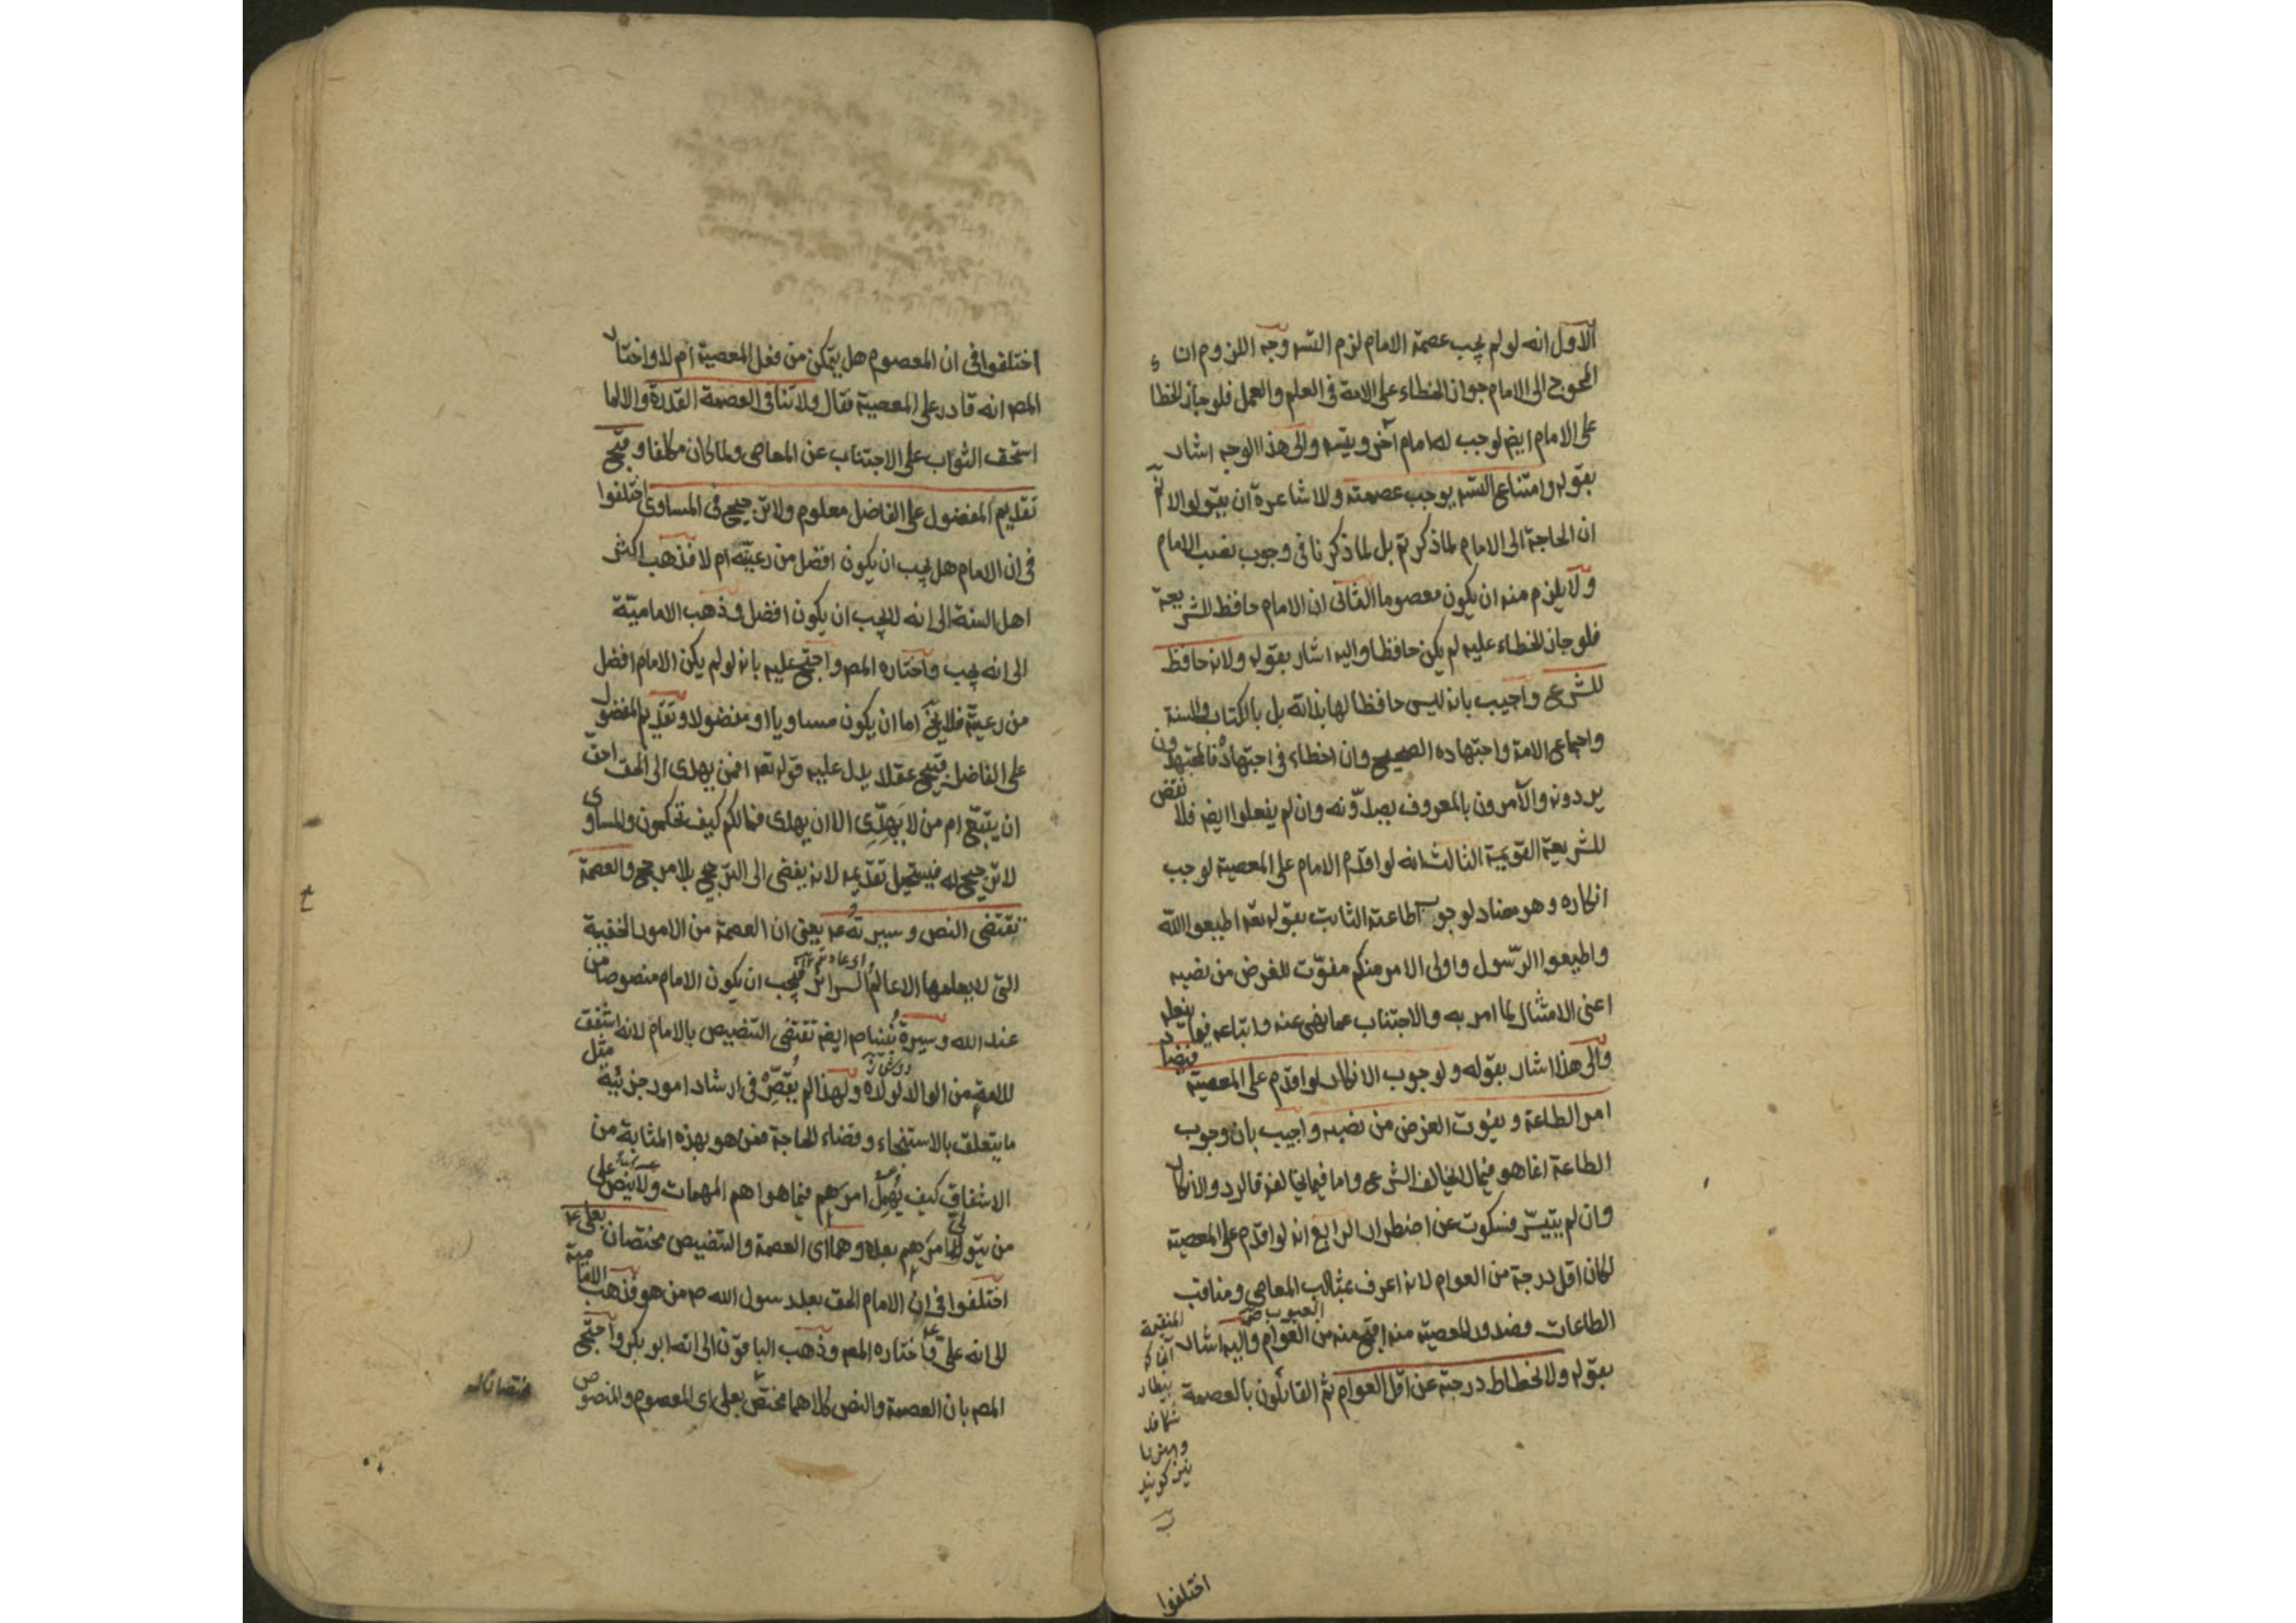 الاول انه لو لم يجب عصمة الامام لزم التسـ وجه اللزوم ان
المحوج الى الامام جواز الخطاء على الامة فى العلم والعمل فلو جاز الخطا
على الامام ايضـ لوجب له امام آخر ويتسـ والى هذا الوجه اشار
بقوله وامتناع التسـ يوجب عصمته ولاشاعرة ان يقولوا لا نم
ان الحاجة الى الامام لما ذكرتم بل لما ذكرنا فى وجوب نصب الامام
ولا يلزم منه ان يكون معصوما الثانى ان الامام حافظ للشريعة
فلو جاز الخطاء عليه لم يكن حافظا واليه اشار بقوله ولانه حافظ
للشرع واجيب بانه ليس حافظا لها بذاته بل بالكتاب والسنة
واجماع الامة واجتهاده الصحيح وان اخطاء فى اجتهاده فالمجتهدون
يردونه والآمرون بالمعروف يصدّونه وان لم يفعلوا ايضـ فلا نقض
للشريعة القويمة الثالث انه لو اقدم الامام على المعصية لوجب
انكاره وهو مضاد لوجوب اطاعته الثابت بقوله تعـ اطيعوا الله
واطيعوا الرّسول واولى الامر منكم مفوّت للغرض من نصبه
اعنى الامتثال لما امر به والاجتناب عما نهى عنه واتباعه فيما يفعله
والى هذا اشار بقوله ولوجوب الانكار لو اقدم على المعصية فيضاد
امر الطاعة ويفوت الغرض من نصبه واجيب بان وجوب
الطاعة انما هو فيما لا يخالف الشرع واما فيما يخالفه فالرد والانكار
وان لم يتيسّر فسكوت عن اضطرار الرابع انه لو اقدم على المعصية
لكان اقل درجة من العوام لانه اعرف بمثالب المعاصى ومناقب
العيوب
الطاعات وصدور المعصية منه اقبح منه من العوام واليه اشار
بقوله ولانحطاط درجته عن اقل العوام ثم القائلون بالعصمة
المنقبة
نيز كويند
اختلفوا
اختلفوا فى ان المعصوم هل يتمكن من فعل المعصية ام لا واختار
المصـ انه قادر على المعصية فقال ولا تنافى العصمة القدرة والا لما
استحق الثواب على الاجتناب عن المعاصى ولما كان مكلفا وقبح
تقديم المفضول على الفاضل معلوم ولا ترجيح فى المساوى اختلفوا
فى ان الامام هل يجب ان يكون افضل من رعيته ام لا فذهب اكثر
اهل السنة الى انه لا يجب ان يكون افضل وذهب الامامية
الى انه يجب واختاره المصـ واحتج عليه بانه لو لم يكن الامام افضل
من رعيته فلا يخ اما ان يكون مساويا او مفضولا وتقديم المفضول
على الفاضل قبيح عقلا يدل عليه قوله تعـ افمن يهدى الى الحق احق
ان يتبع ام من لا يَهِدِّى الا ان يهدى فمالكم كيف تحكمون والمساوى
لا ترجيح له فيستحيل تقديمه لانه يفضى الى الترجيح بلا مرجح والعصمة
تقتضى النص وسيرته عـ يعنى ان العصمة من الامور الخفية
التى لا يعلمها الا عالم السرائر فيجب ان يكون الامام منصوصا من
عند الله وسيرة نبينا ص ايضـ تقتضى التنصيص بالامام لانه اشفق
للامة من الوالد لولاه ولهذا لم يُقصِّر فى ارشاد امور جزئية مثل
ما يتعلق بالاستنجاء وقضاء الحاجة فمن هو بهذه المثابة من
الاشفاق كيف يُهمل امرهم فيما هو اهم المهمات ولا ينص على
من يتولى امرهم بعده وهما اى العصمة والتنصيص مختصان بعلى عـ
اختلفوا فى ان الامام الحق بعد رسول الله ص من هو فذهب الامامية
الى انه على عـ واختاره المصـ وذهب الباقون الى انه ابو بكر واحتج
المصـ بان العصمة والنص كلاهما مختص بعلى اى المعصوم والمنصوص